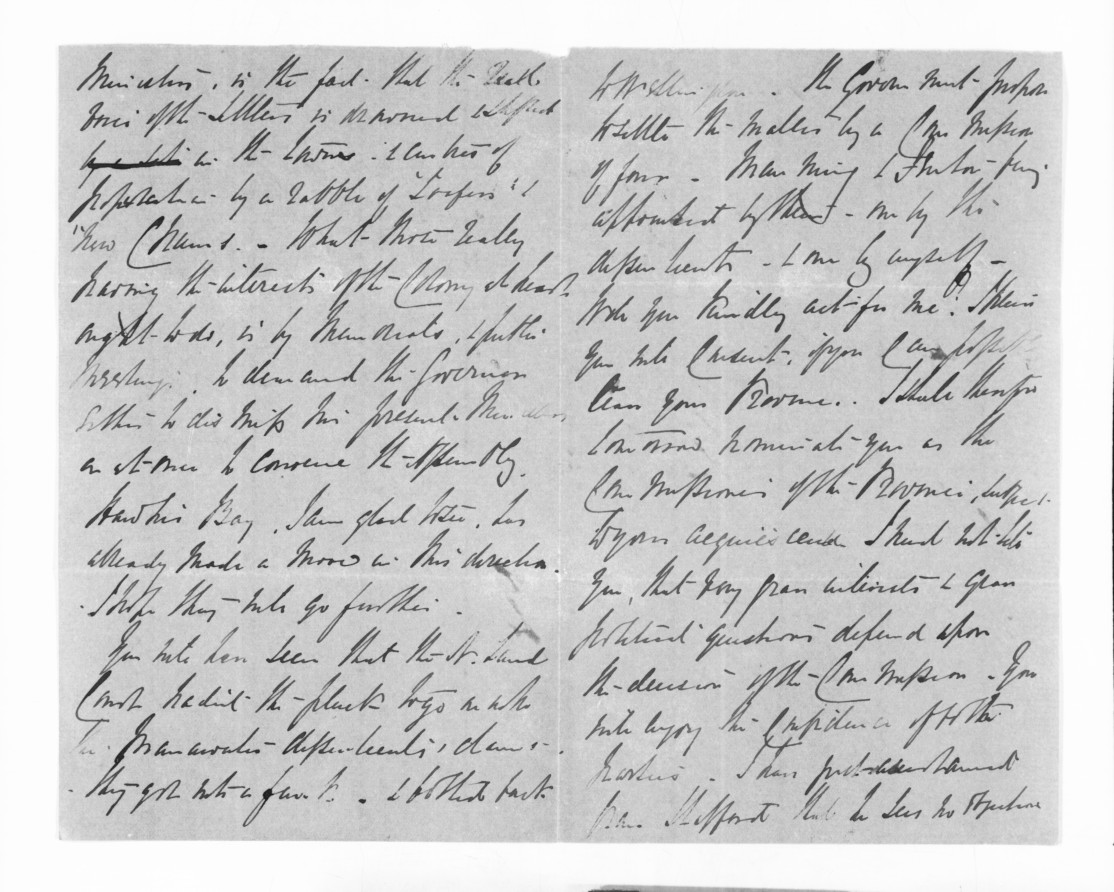 Ministers, is the fact that the real
voice of the settlers is drowned & stifled
in the towns & centres of
population by a rabble of "Loafers" &
"new Chums". - What those really
having the interests of the Colony at heart
ought to do, is by Memorials, & public
Meetings, to demand the Governor
either to dismiss his present Ministers
or at once to convene the Assembly.
Hawkes Bay, I am glad to see, has
already made a move in this direction.
- I hope they will go further.
You will have seen that the N. Land
Court hadnt the pluck to go on with
the Manawatu dissentients' claims -
- they got into a funk. - & bolted back
to Wellington. The Government propose
to settle the matter by a Commission
of four - Manning & Fenton being
appointed by them - one by the
dissentients - & one by myself -
Will you kindly act for me? I know
you will consent, if you can possibly
leave your Province. I shall therefore
tomorrow nominate you as the
Commissioner of the Province, subject
to your acquiescence I need not tell
you, that very grave interests & grave
political questions depend upon
the decision of the Commission - You
will enjoy the Confidence of both
parties - I have just ascertained
from Stafford that he sees no objection